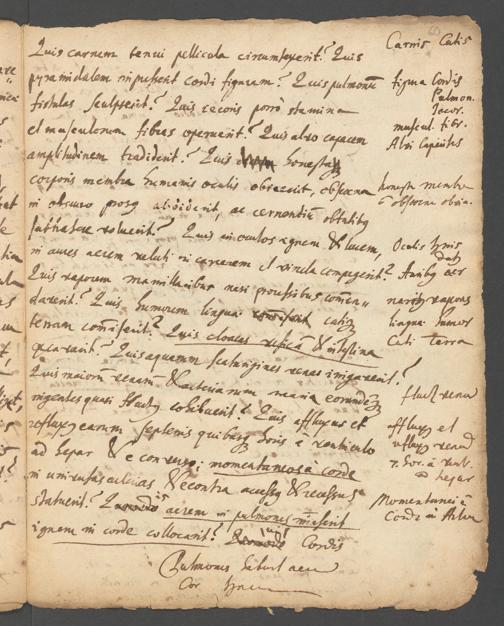 Quis carnem tenui pellicula circumtexerit? Quis
pyramidalem impulerit cordi figuram? Quis pulmonū
fistulas sculpserit? Quis iecoris porrò stamina
et musculorum fibras operuerit? Quis alvo capacem
amplitudinem tradiderit? Quis honesta
corporis membra humanis oculis obiecerit, obscœna
in obscuro abdiderit, ac cernentiū
voluerit? Quis in oculos ignem & lucem,
in aures aerem veluti in carcerem et vincla compegerit?
Quis vaporem mamillaribus nasi processibus
dederit? Quis humorem linguæ cuti
terram commiserit? Quis cloacas & intestina
Quis aquarum scaturigines renes irrigarent?
Quis maiorū venarū & arteriarum maria
ingentes quasi fluctus cohibuerit? Quis affluxus et
refluxus earum septenis horis à ventriculo
ad hepar & è converso; momentaneos à corde
in universas alvi & contra accessus & recessus
statuerit? aerem in pulmones
ignem in corde collocarit? Cordis
Pulmones habent aerem
Cor ignem
Carnis Cutis
figura Cordis
Pulmon.
Iecor.
muscul. fibr.
Alvi Capacitas
honesta membra
obscœna
Oculis Ignis
Auribus aer
naribus vapores
linguæ humor
Cuti terra
fluctus venarum
affluxus et
refluxus venarum
7. hor. à vent.
ad hepar
Momentanei à
Corde in